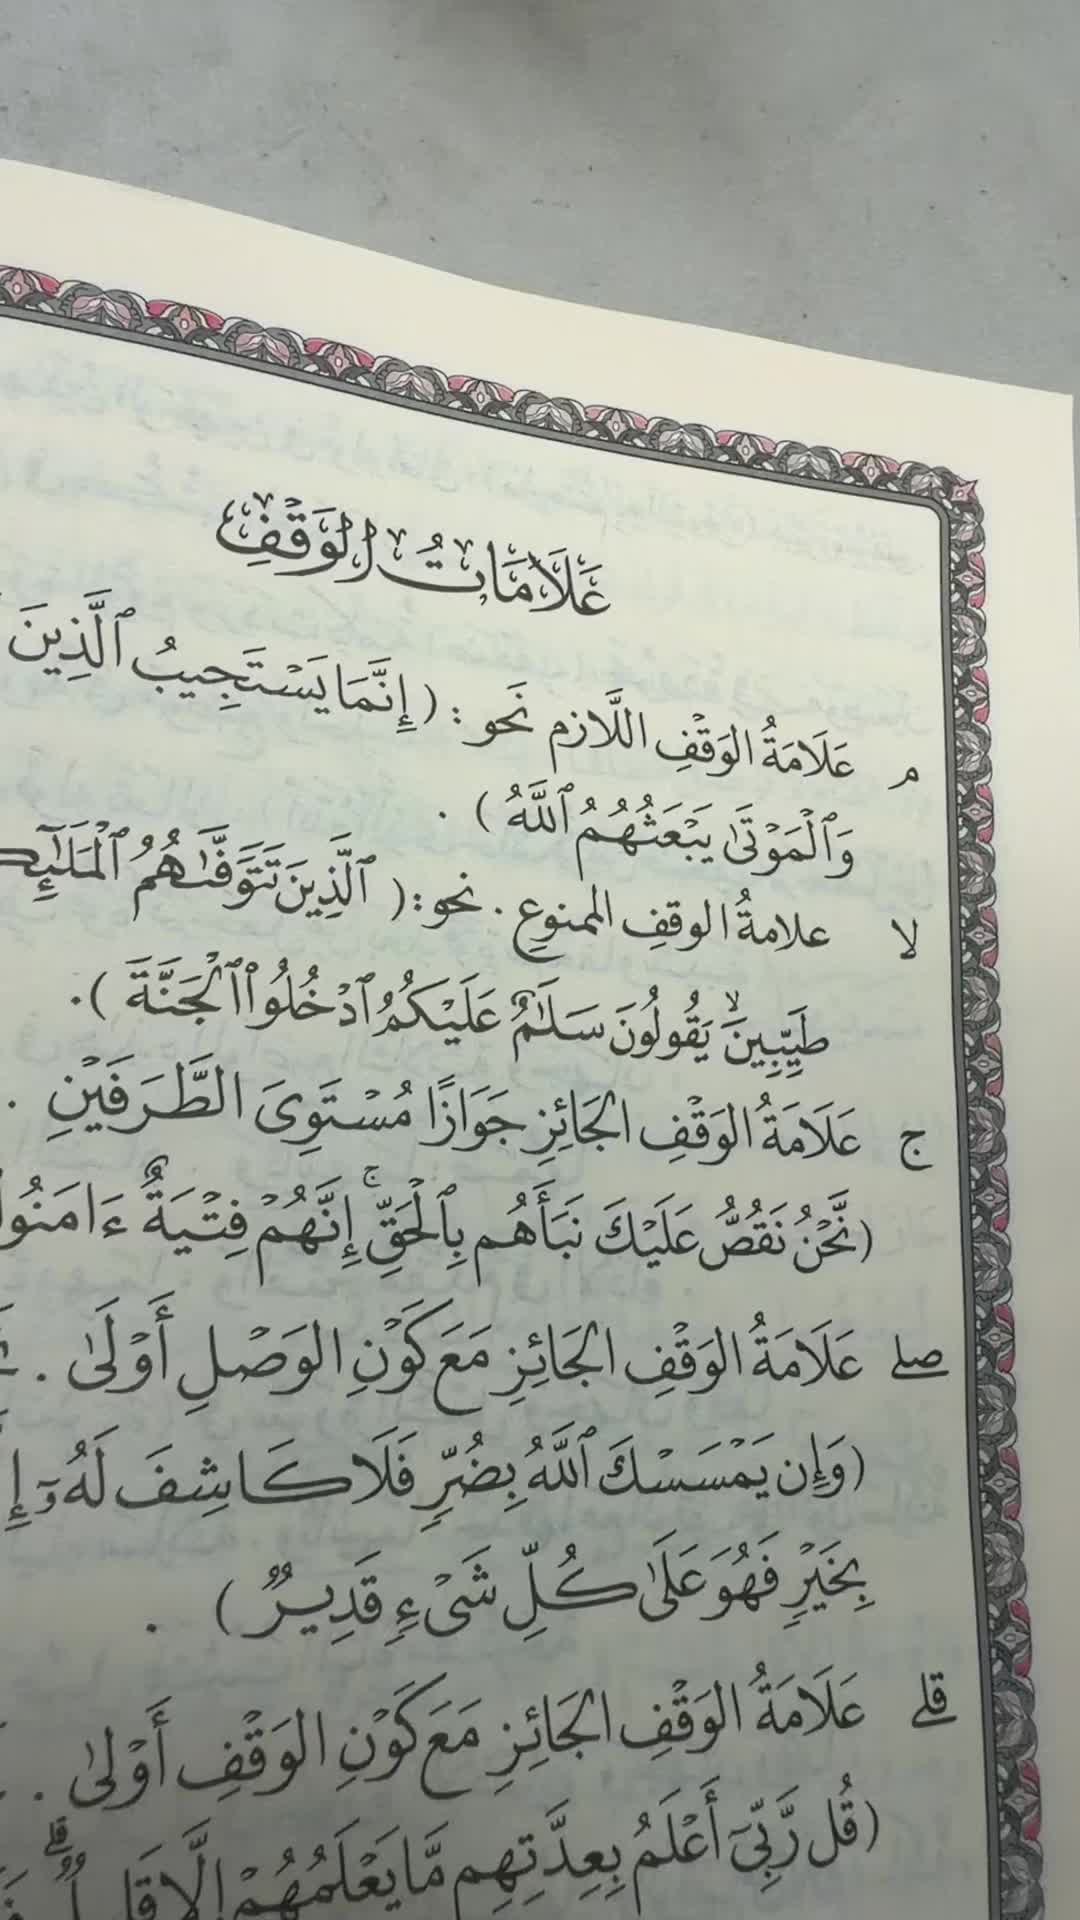 عَلَامَاتُ الوَقْفِ
م عَلَامَةُ الوَقْفِ اللَّازِمِ نَحو : ( إِنَّمَا يَسْتَجِيبُ ٱلَّذِينَ
وَٱلْمَوْتَىٰ يَبْعَثُهُمُ ٱللَّهُ ) .
لا علامةُ الوقفِ الممنوعِ . نحو : ( ٱلَّذِينَ تَتَوَفَّىٰهُمُ
طَيِّبِينَ ۙ يَقُولُونَ سَلَٰمٌ عَلَيْكُمُ ٱدْخُلُوا۟ ٱلْجَنَّةَ ) .
ج عَلَامَةُ الوَقْفِ الجَائِزِ جَوَازًا مُسْتَوِيَ الطَّرَفَيْنِ .
( نَّحْنُ نَقُصُّ عَلَيْكَ نَبَأَهُم بِٱلْحَقِّ ۚ إِنَّهُمْ فِتْيَةٌ
صلے عَلَامَةُ الوَقْفِ الجَائِزِ مَعَ كَوْنِ الوَصْلِ أَوْلَىٰ .
( وَإِن يَمْسَسْكَ ٱللَّهُ بِضُرٍّ فَلَا كَاشِفَ لَهُۥٓ
بِخَيْرٍ فَهُوَ عَلَىٰ كُلِّ شَىْءٍ قَدِيرٌ ) .
قلے عَلَامَةُ الوَقْفِ الجَائِزِ مَعَ كَوْنِ الوَقْفِ أَوْلَىٰ .
( قُل رَّبِّىٓ أَعْلَمُ بِعِدَّتِهِم مَّا يَعْلَمُهُمْ إِلَّا